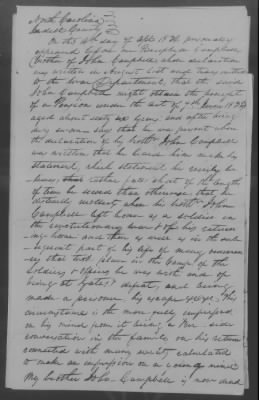 North Carolina
County
On this day of 1826 personally
appeared before me Campbell
(brother of John Campbell whose declaration
was written in August last and transmitted
to the War Department, that the said
John Campbell might obtain the benefit
of a Pension under the act of 7th June 1832)
aged about sixty six years: and after being
duly sworn say that he was present when
the declaration of his brother John Campbell
was written that he heard him make his
statement, which statement he verily be-
lieves, rather falls short of the length
of time he served than otherwise, that he
distinctly recollects when his brother John
Campbell left home as a soldier in
the revolutionary war & of his return
home and then as well as in the sub-
sequent part of his life of many conversa-
tions that took place in the Company of Old
Soldiers of his being he was with and of
being at Gates's defeat, and being
made a prisoner his escape &c &c. This
circumstance is the more fully impressed
on his mind from it being a
conversation in the family on his return
connected with many calculated
to make an impression on a young mind
My brother John Campbell is now and